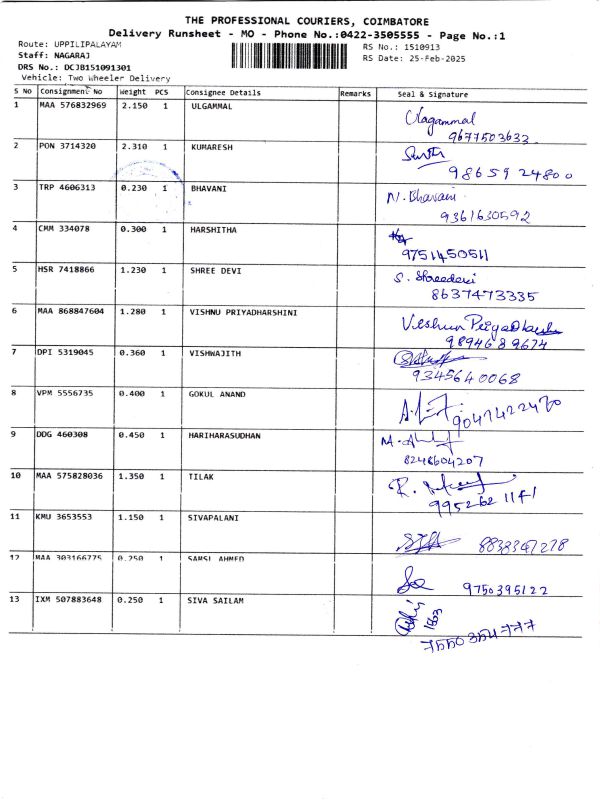 THE PROFESSIONAL COURIERS, COIMBATORE
Delivery Runsheet - MO - Phone No.:0422-3505555 - Page No.:1
Route: UPPILIPALAYAM
RS No.: 1510913
Staff: NAGARAJ
RS Date: 25-Feb-2025
DRS No.: DCJB151091301
Vehicle: Two Wheeler Delivery
S No Consignment No Weight PCS Consignee Details Remarks Seal & Signature
1 MAA 576832969 2.150 1 ULGAMMAL Ulagammal
9677503633
2 PON 3714320 2.310 1 KUMARESH
98659 24800
3 TRP 4606313 0.230 1 BHAVANI N. Bhavani
9361630592
4 CMM 334078 0.300 1 HARSHITHA
9751450511
5 HSR 7418866 1.230 1 SHREE DEVI S. Shreedevi
8637473335
6 MAA 868847604 1.280 1 VISHNU PRIYADHARSHINI
9894689674
7 DPI 5319045 0.360 1 VISHWAJITH
9345640068
8 VPM 5556735 0.400 1 GOKUL ANAND
9 DDG 460308 0.450 1 HARIHARASUDHAN
8248604207
10 MAA 575828036 1.350 1 TILAK
995262 1141
11 KMU 3653553 1.150 1 SIVAPALANI
8838347278
12 MAA 303166775 0.250 1 SAMSL AHMED
9750395122
13 IXM 507883648 0.250 1 SIVA SAILAM
7550354777